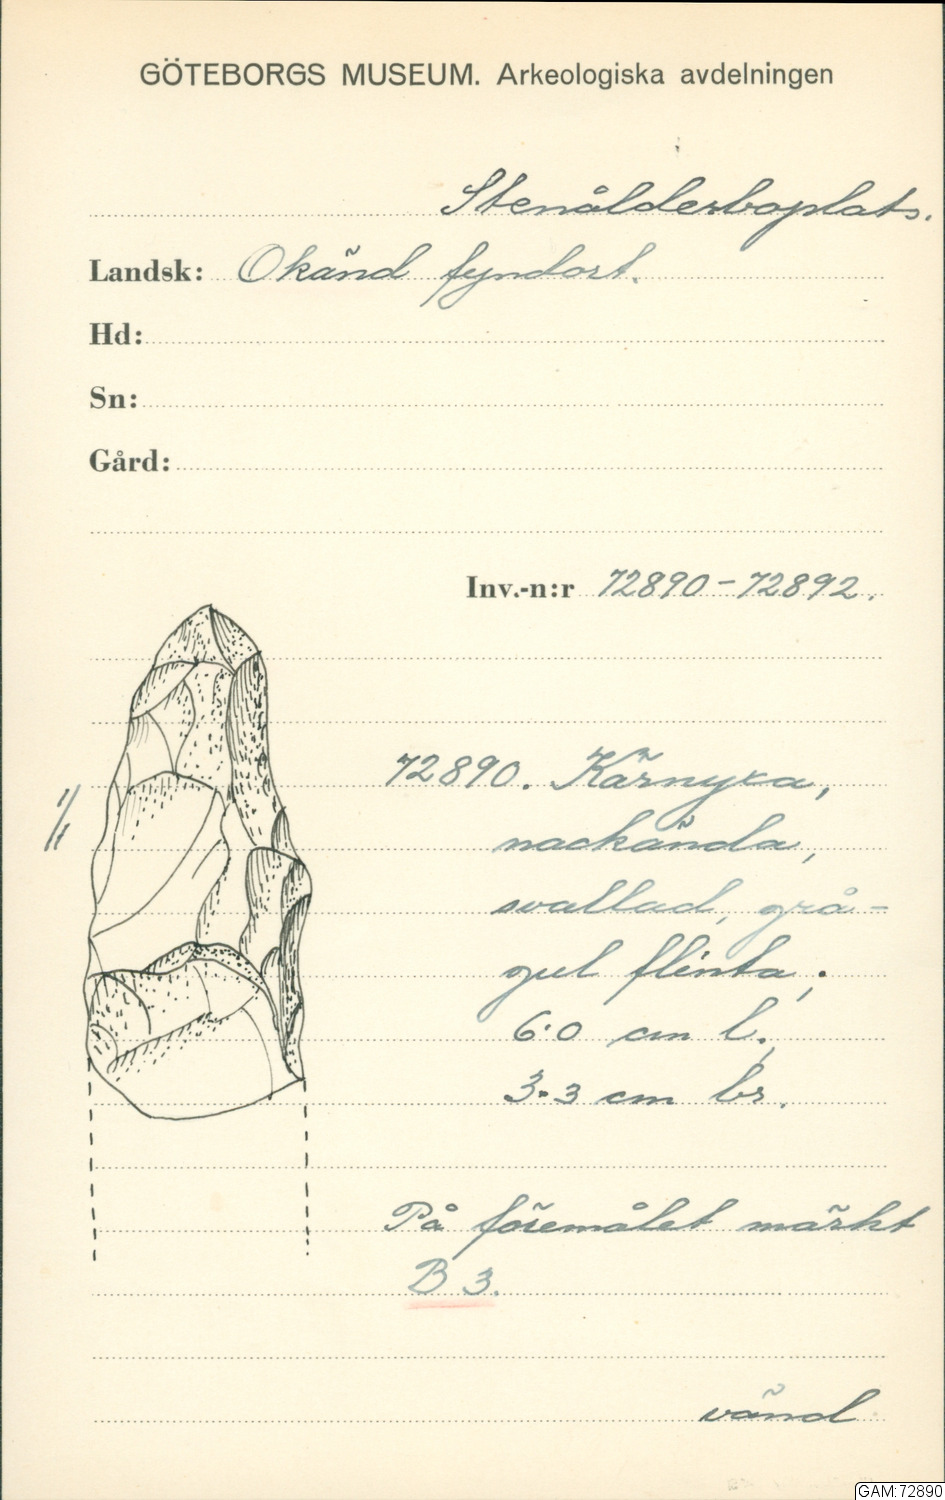 GÖTEBORGS MUSEUM. Arkeologiska avdelningen
Stenåldersboplats.
Landsk: Okänd fyndort.
Hd:
Sn:
Gård:
Inv.-n:r 72890-72892.
1/1
72890. Kärnyxa,
nackända,
svallad, grå-
gul flinta;
6.0 cm l.,
3.3 cm br.
På föremålet märkt
B 3.
vänd
GAM:72890